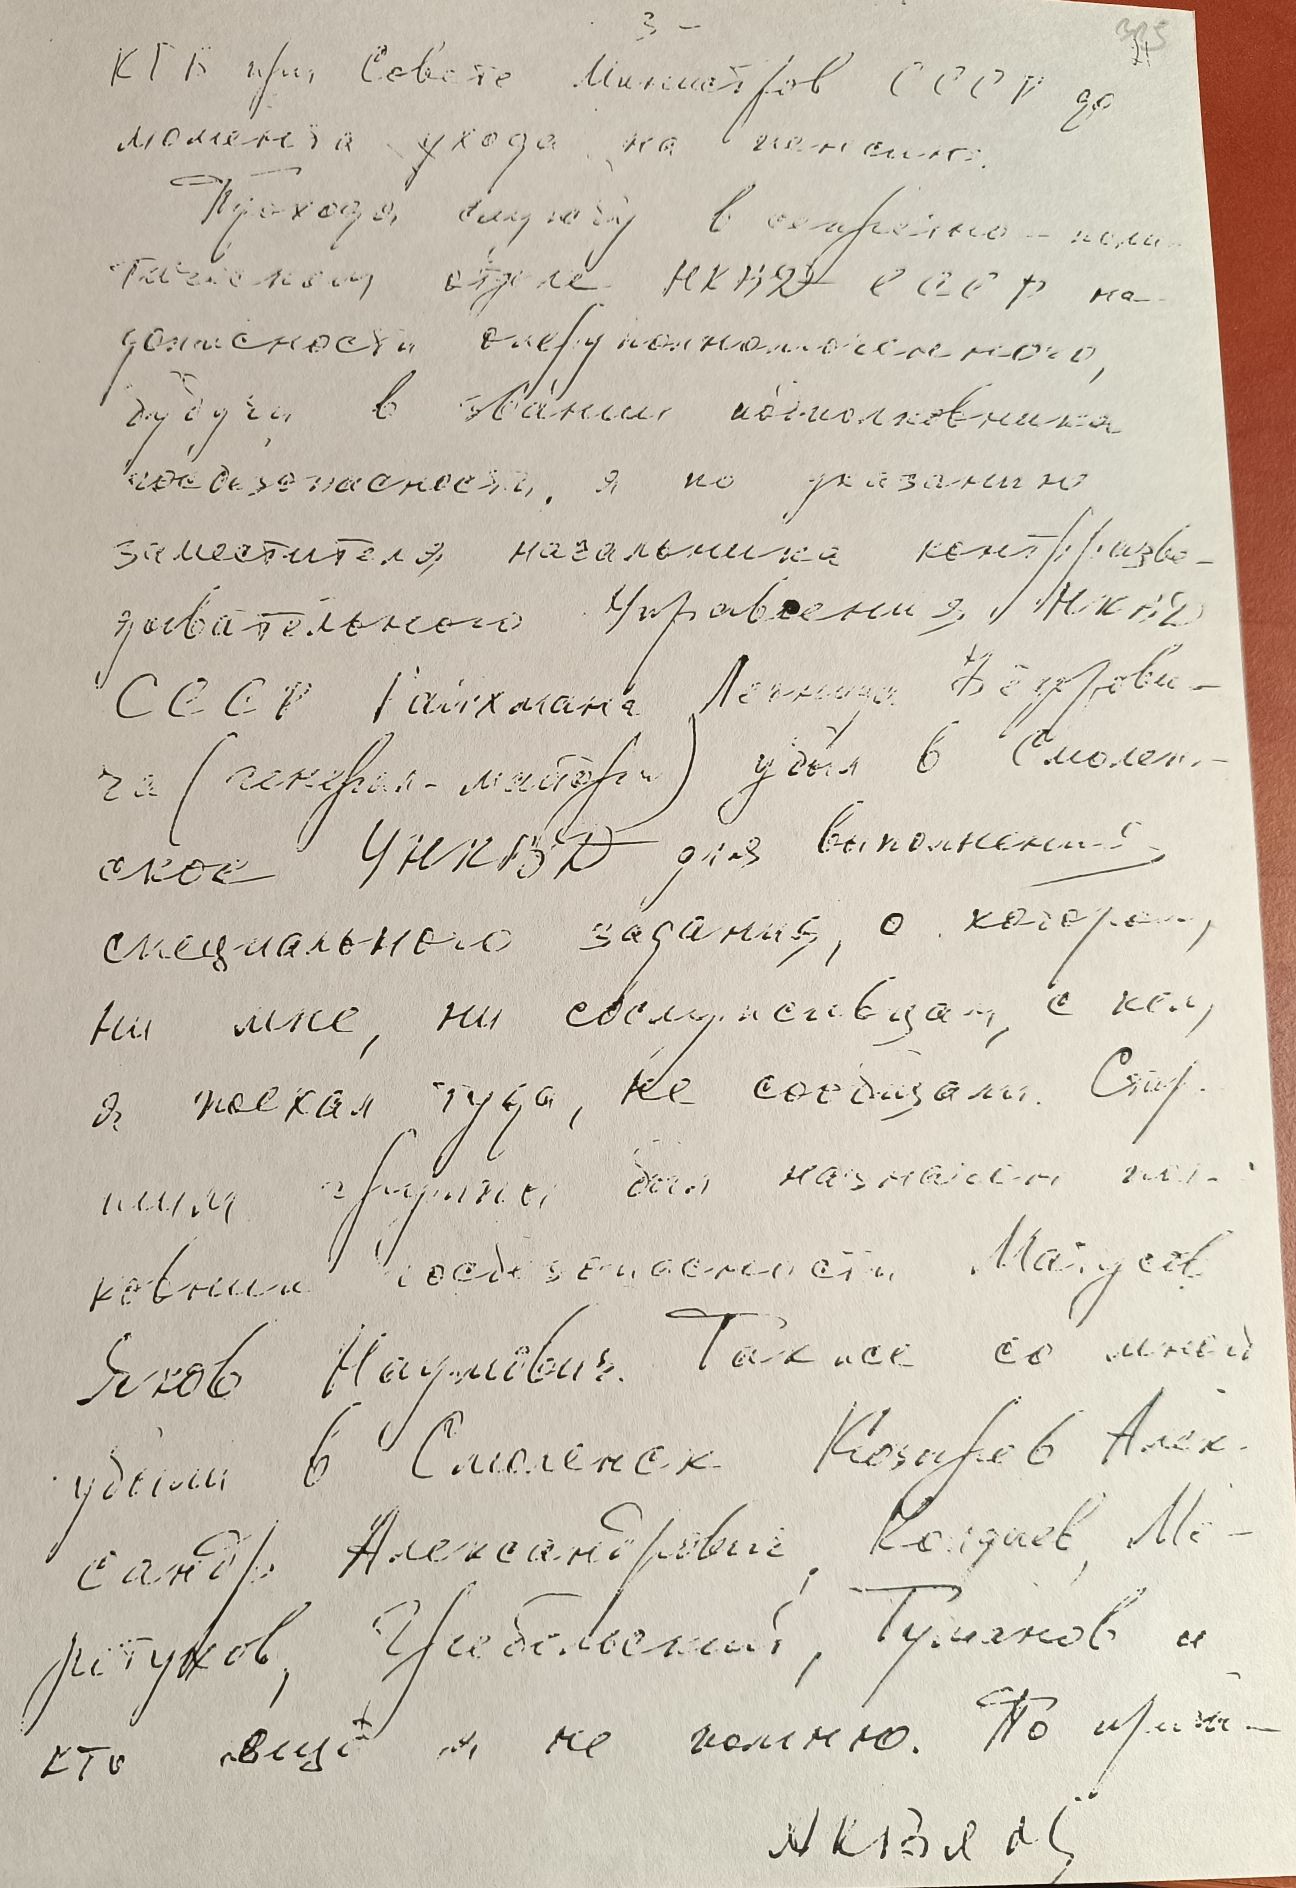 3 -
КГБ при Совете Министров СССР до
момента ухода на пенсию.
Проходя службу в секретно-поли-
тическом отделе НКВД СССР на
должности оперуполномоченного,
будучи в звании подполковника
госбезопасности, я по указанию
заместителя начальника контрразве-
дывательного Управления НКВД
СССР Райхмана Леонида Фёдорови-
ча (генерал-майора) убыл в Смолен-
ское УНКВД для выполнения
специального задания, о котором,
ни мне, ни сослуживцам, с кем,
я поехал туда, не сообщали. Стар-
шим группы был назначен пол-
ковник госбезопасности Матусов
Яков Наумович. Также со мной
убыли в Смоленск Козырев Алек-
сандр Александрович, Мо-
ретуков, Гребельский, Туманов и
кто ещё я не помню. По приез-